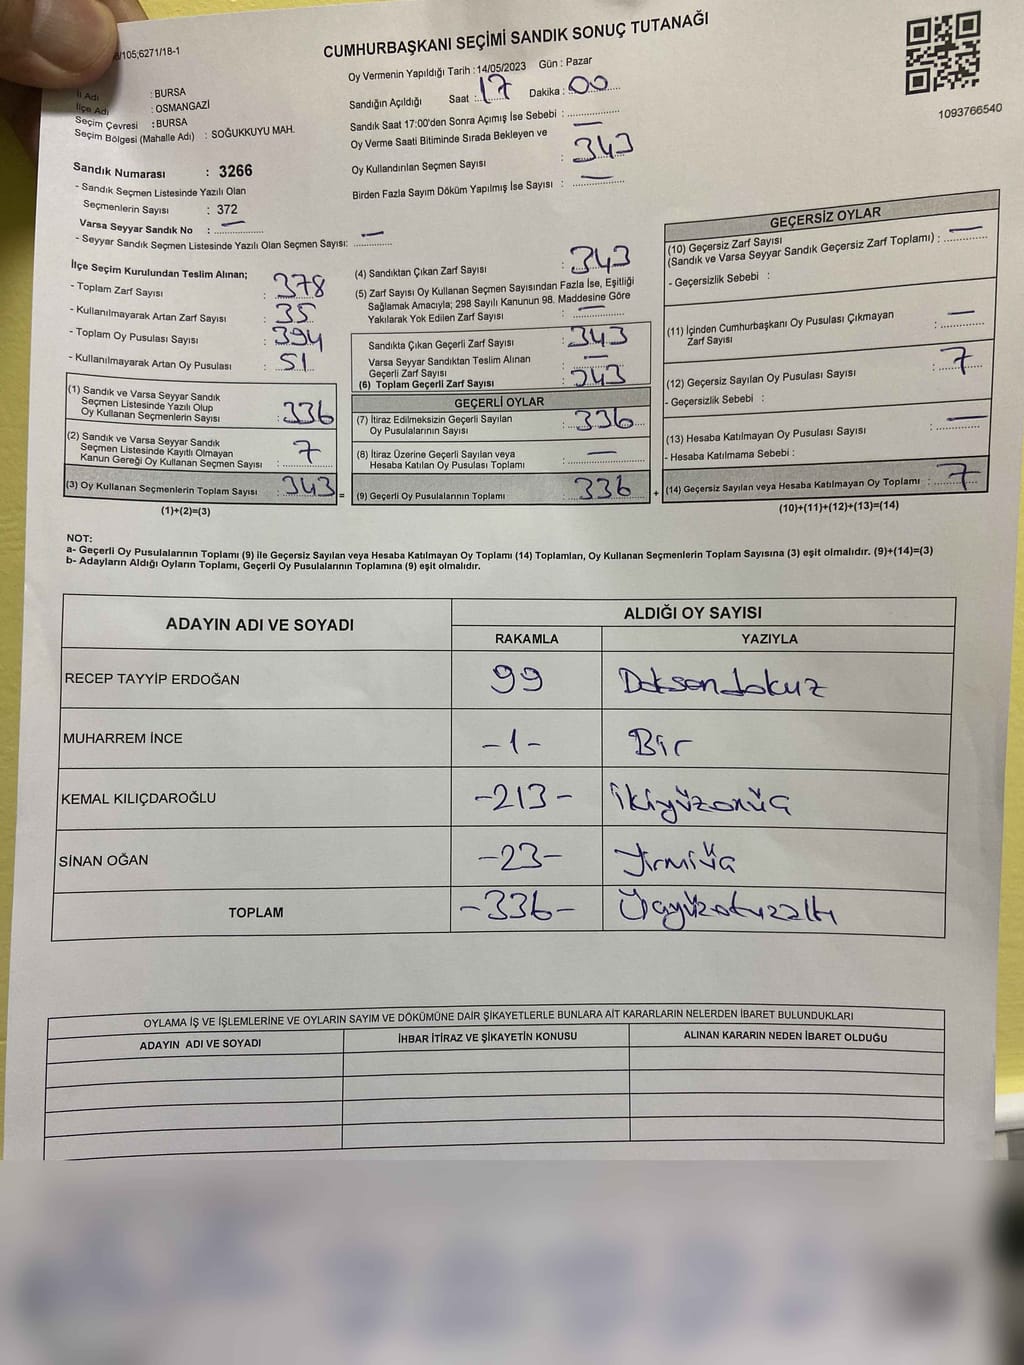 /105;6271/18-1
CUMHURBAŞKANI SEÇİMİ SANDIK SONUÇ TUTANAĞI
1093766540
İl Adı : BURSA
İlçe Adı : OSMANGAZİ
Seçim Çevresi : BURSA
Seçim Bölgesi (Mahalle Adı) : SOĞUKKUYU MAH.
Oy Vermenin Yapıldığı Tarih : 14/05/2023 Gün : Pazar
Sandığın Açıldığı Saat : 17 Dakika : 00
Sandık Saat 17:00'den Sonra Açımış İse Sebebi : —
Oy Verme Saati Bitiminde Sırada Bekleyen ve
Oy Kullandırılan Seçmen Sayısı : 343
Birden Fazla Sayım Döküm Yapılmış İse Sayısı : —
Sandık Numarası : 3266
- Sandık Seçmen Listesinde Yazılı Olan
Seçmenlerin Sayısı : 372
Varsa Seyyar Sandık No : —
- Seyyar Sandık Seçmen Listesinde Yazılı Olan Seçmen Sayısı: —
İlçe Seçim Kurulundan Teslim Alınan;
- Toplam Zarf Sayısı : 378
- Kullanılmayarak Artan Zarf Sayısı : 35
- Toplam Oy Pusulası Sayısı : 394
- Kullanılmayarak Artan Oy Pusulası : 51
(1) Sandık ve Varsa Seyyar Sandık
Seçmen Listesinde Yazılı Olup
Oy Kullanan Seçmenlerin Sayısı : 336
(2) Sandık ve Varsa Seyyar Sandık
Seçmen Listesinde Kayıtlı Olmayan
Kanun Gereği Oy Kullanan Seçmen Sayısı : 7
(3) Oy Kullanan Seçmenlerin Toplam Sayısı : 343 =
(1)+(2)=(3)
(4) Sandıktan Çıkan Zarf Sayısı : 343
(5) Zarf Sayısı Oy Kullanan Seçmen Sayısından Fazla İse, Eşitliği
Sağlamak Amacıyla; 298 Sayılı Kanunun 98. Maddesine Göre
Yakılarak Yok Edilen Zarf Sayısı : —
Sandıkta Çıkan Geçerli Zarf Sayısı : 343
Varsa Seyyar Sandıktan Teslim Alınan
Geçerli Zarf Sayısı : —
(6) Toplam Geçerli Zarf Sayısı : 343
GEÇERLİ OYLAR
(7) İtiraz Edilmeksizin Geçerli Sayılan
Oy Pusulalarının Sayısı : 336
(8) İtiraz Üzerine Geçerli Sayılan veya
Hesaba Katılan Oy Pusulası Toplamı : —
(9) Geçerli Oy Pusulalarının Toplamı : 336 +
GEÇERSİZ OYLAR
(10) Geçersiz Zarf Sayısı
(Sandık ve Varsa Seyyar Sandık Geçersiz Zarf Toplamı) : —
- Geçersizlik Sebebi :
(11) İçinden Cumhurbaşkanı Oy Pusulası Çıkmayan
Zarf Sayısı : —
(12) Geçersiz Sayılan Oy Pusulası Sayısı : 7
- Geçersizlik Sebebi :
(13) Hesaba Katılmayan Oy Pusulası Sayısı : —
- Hesaba Katılmama Sebebi :
(14) Geçersiz Sayılan veya Hesaba Katılmayan Oy Toplamı : 7
(10)+(11)+(12)+(13)=(14)
NOT:
a- Geçerli Oy Pusulalarının Toplamı (9) ile Geçersiz Sayılan veya Hesaba Katılmayan Oy Toplamı (14) Toplamları, Oy Kullanan Seçmenlerin Toplam Sayısına (3) eşit olmalıdır. (9)+(14)=(3)
b- Adayların Aldığı Oyların Toplamı, Geçerli Oy Pusulalarının Toplamına (9) eşit olmalıdır.
ADAYIN ADI VE SOYADI ALDIĞI OY SAYISI
RAKAMLA YAZIYLA
RECEP TAYYİP ERDOĞAN 99 Doksandokuz
MUHARREM İNCE -1- Bir
KEMAL KILIÇDAROĞLU -213- ikiyüzonüç
SİNAN OĞAN -23- yirmiüç
TOPLAM -336- Üçyüzotuzaltı
OYLAMA İŞ VE İŞLEMLERİNE VE OYLARIN SAYIM VE DÖKÜMÜNE DAİR ŞİKAYETLERLE BUNLARA AİT KARARLARIN NELERDEN İBARET BULUNDUKLARI
ADAYIN ADI VE SOYADI İHBAR İTİRAZ VE ŞİKAYETİN KONUSU ALINAN KARARIN NEDEN İBARET OLDUĞU